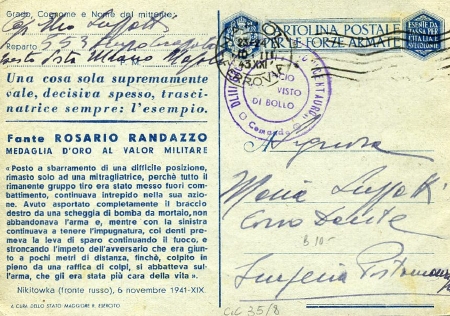 Grado, Cognome e Nome del mittente:
Reparto 553
Posta
Una cosa sola supremamente
vale, decisiva spesso, trasci-
natrice sempre: l'esempio.
Fante ROSARIO RANDAZZO
MEDAGLIA D'ORO AL VALOR MILITARE
« Posto a sbarramento di una difficile posizione,
rimasto solo ad una mitragliatrice, perchè tutto il
rimanente gruppo tiro era stato messo fuori com-
battimento, continuava intrepido nella sua azio-
ne. Avuto asportato completamente il braccio
destro da una scheggia di bomba da mortaio, non
abbandonava l'arma e, mentre con la sinistra
continuava a tenere l'impugnatura, coi denti pre-
meva la leva di sparo continuando il fuoco, e
stroncando l'impeto dell'avversario che era giun-
to a pochi metri di distanza, finchè, colpito in
pieno da una raffica di colpi, si abbatteva sul-
l'arma, che gli era stata più cara della vita ».
Nikitowka (fronte russo), 6 novembre 1941-XIX.
A CURA DELLO STATO MAGGIORE R. ESERCITO
CARTOLINA POSTALE
PER LE FORZE ARMATE
ESENTE DA
TASSA PER
L'ITALIA E
43 XXI
CENTAURO
VISTO
DI BOLLO
Comando
Signora
Maria
Corso Dante
B 10-
CiC 35/8